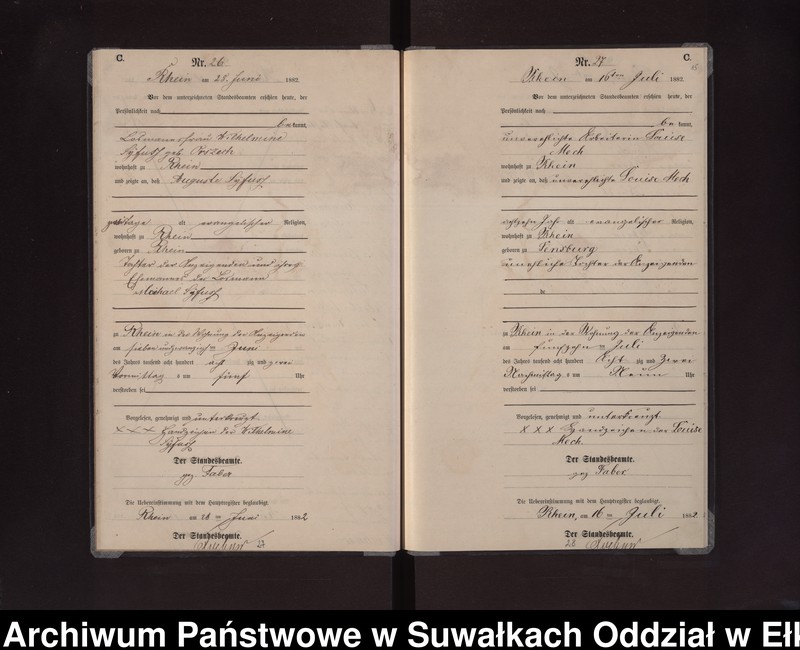 C.
Nr. 26
Rhein am 28. Juni 1882.
Vor dem unterzeichneten Standesbeamten erschien heute, der
Persönlichkeit nach
be kannt,
Losmannsfrau Wilhelmine
geb.
wohnhaft zu Rhein
und zeigte an, daß Auguste
alt evangelischer Religion,
wohnhaft zu Rhein
geboren zu Rhein
Tochter der Anzeigenden und ihres
Ehemannes des Losmann
Michael
zu Rhein in der Wohnung der Anzeigenden
am sieben und zwanzigsten Juni
des Jahres tausend acht hundert acht zig und zwei
Vormittag s um fünf Uhr
verstorben sei
Vorgelesen, genehmigt und unterkreuzt
XXX Handzeichen der Wilhelmine
Der Standesbeamte.
gez Faber
Die Uebereinstimmung mit dem Hauptregister beglaubigt.
Rhein am 28 ten Juni 1882
Der Standesbeamte.
27
C.
Nr. 27
Rhein am 16ten Juli 1882.
Vor dem unterzeichneten Standesbeamten erschien heute, der
Persönlichkeit nach
be kannt,
unverehelichte Arbeiterin Louise
Moch
wohnhaft zu Rhein
und zeigte an, daß unverehelichte Louise Moch
achtzehn Jahr alt evangelischer Religion,
wohnhaft zu Rhein
geboren zu Sensburg
uneheliche Tochter der Anzeigenden
zu Rhein in der Wohnung der Anzeigenden
am fünfzehn ten Juli
des Jahres tausend acht hundert Acht zig und Zwei
Nachmittag s um Neun Uhr
verstorben sei
Vorgelesen, genehmigt und unterkreuzt
XXX Handzeichen der Louise
Moch
Der Standesbeamte.
gez Faber
Die Uebereinstimmung mit dem Hauptregister beglaubigt.
Rhein, am 16 ten Juli 1882
Der Standesbeamte.
28
Archiwum Państwowe w Suwałkach Oddział w Ełk